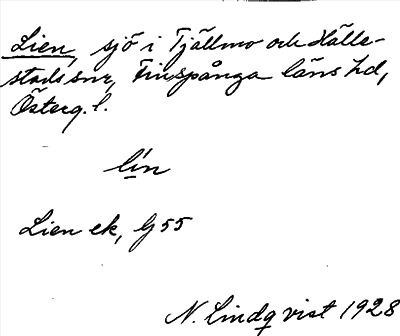 Lien, sjö i Tjällmo och Hälle-
stads snr, Finspånga läns hd,
Österg. l.
lín
Lien ek, G 55
N. Lindqvist 1928